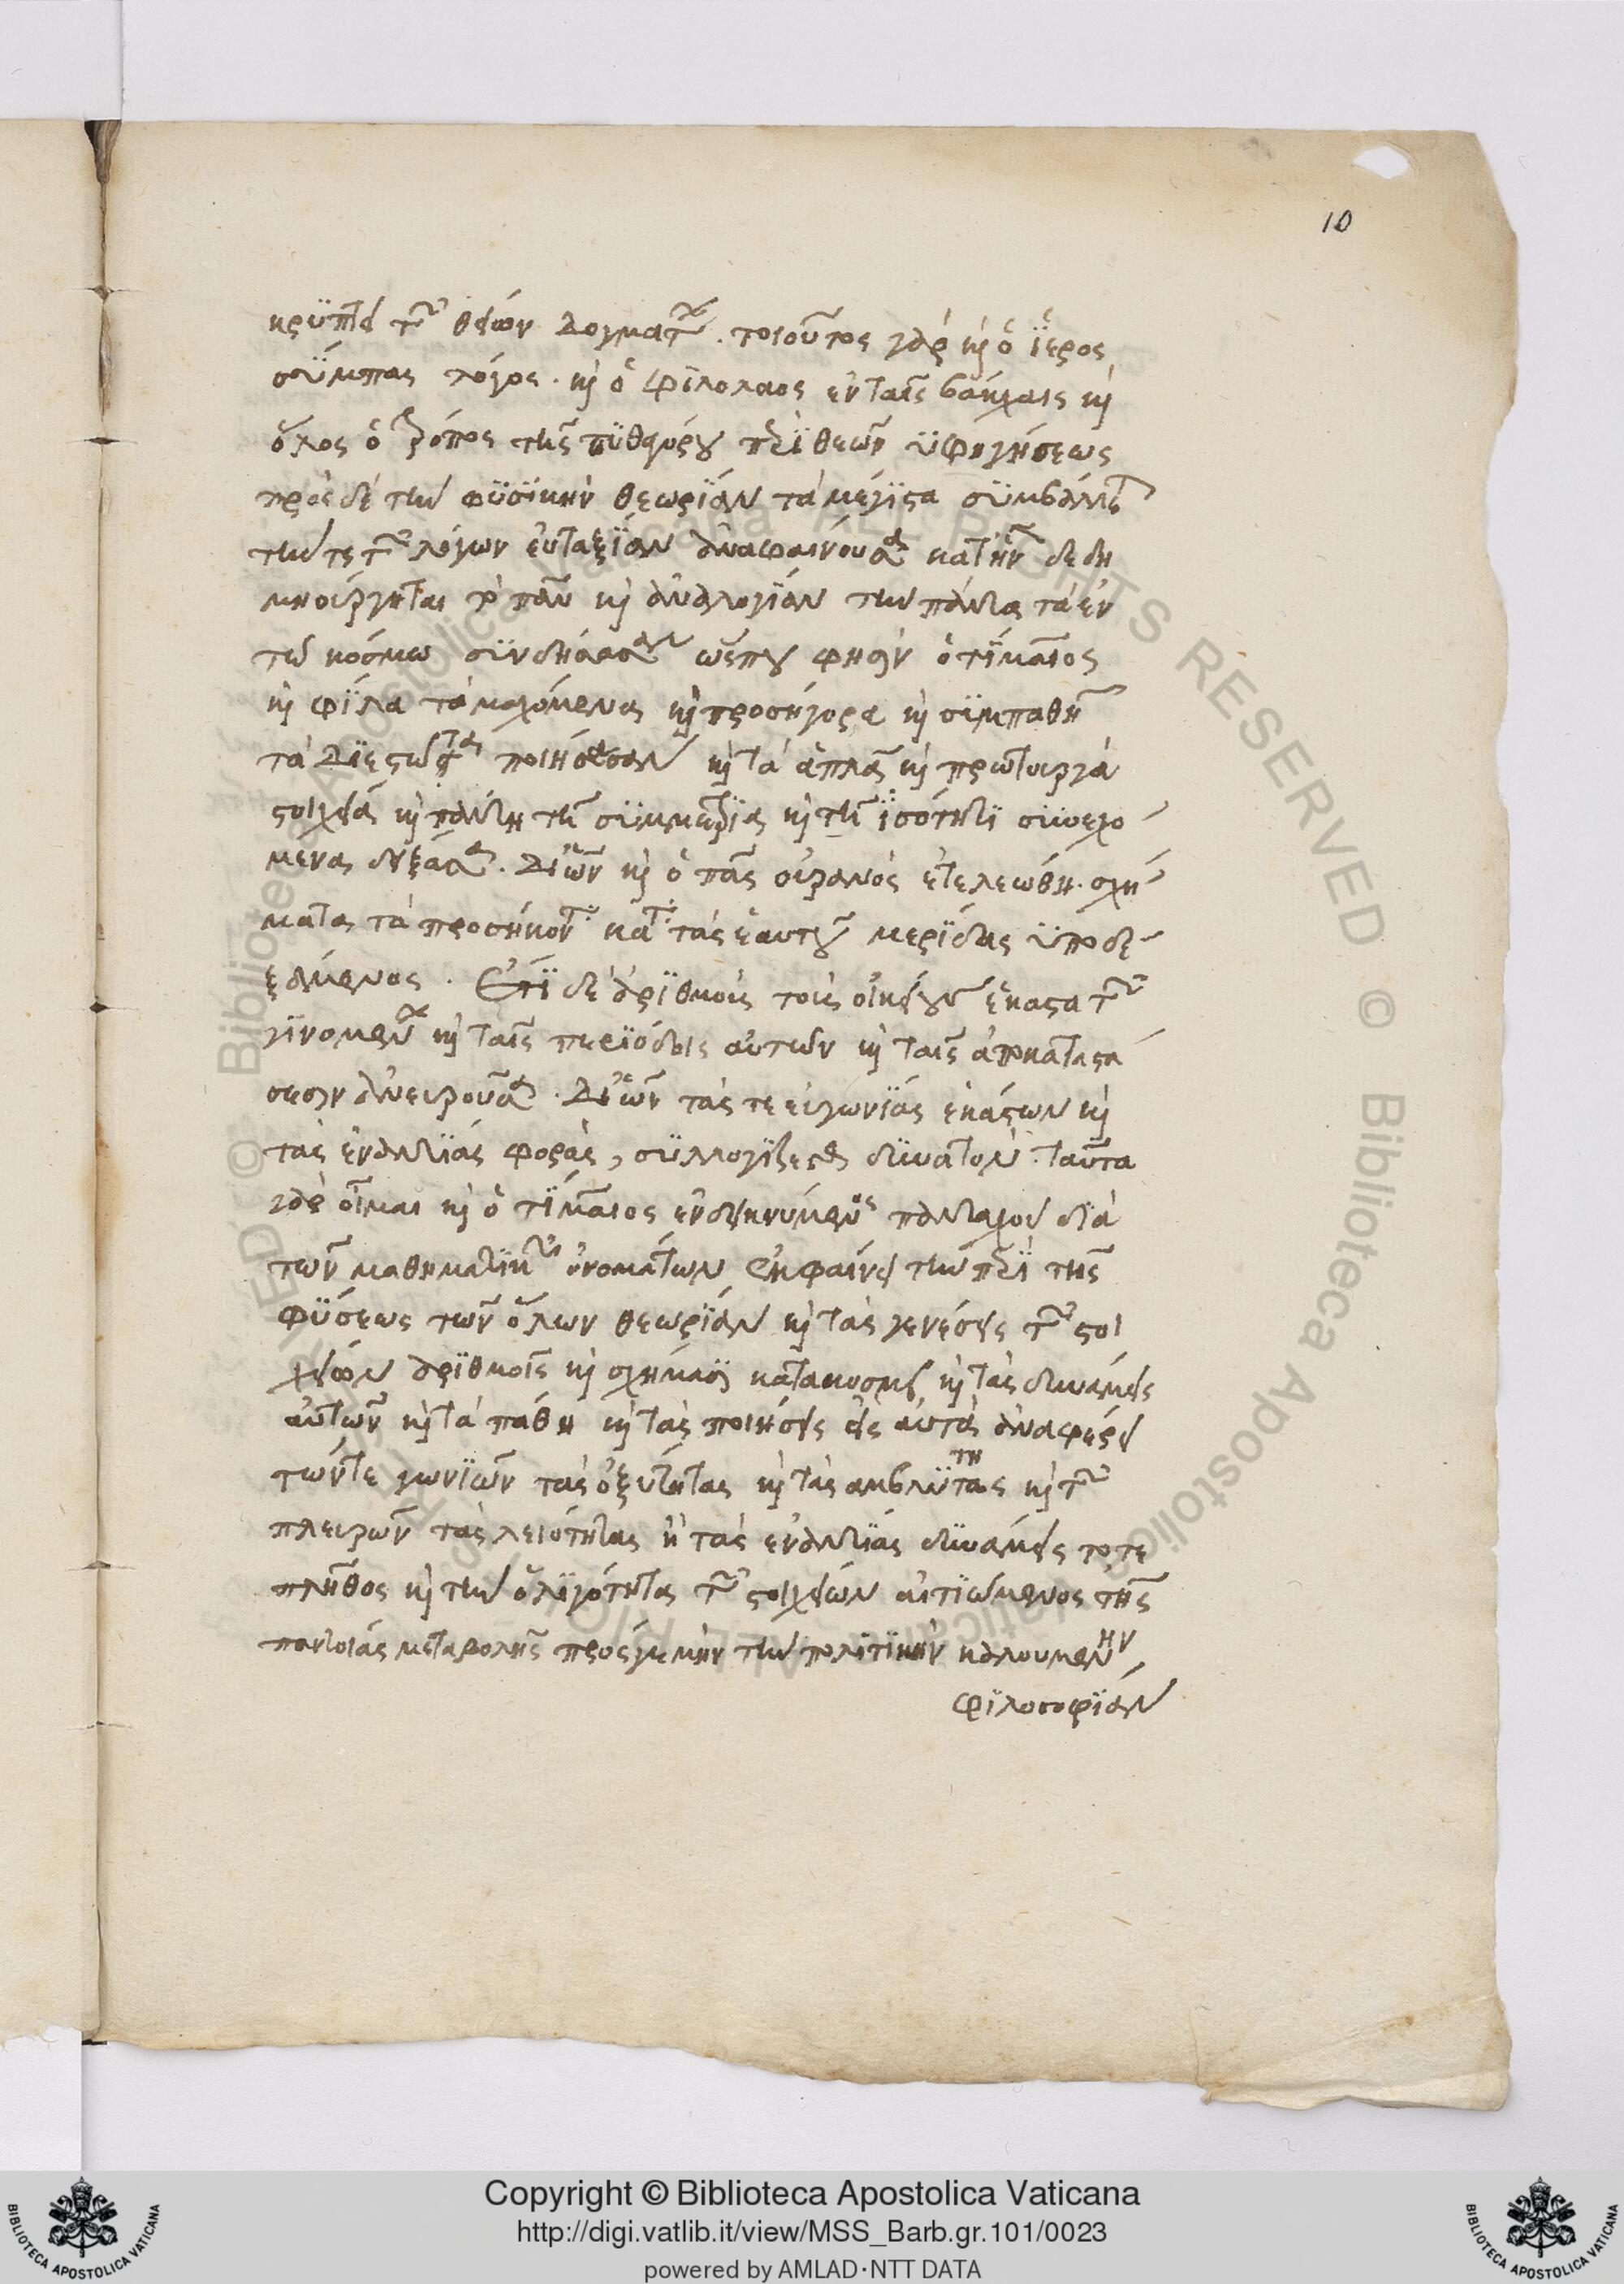 10
κρύπτει τῶν θείων δογμάτων. τοιοῦτος γὰρ καὶ ὁ ἱερὸς
σύμπας λόγος. καὶ ὁ φιλόλαος ἐν ταῖς βάκχαις καὶ
ὅλος ὁ τρόπος τῆς πυθαγόρου περὶ θεῶν ὑφηγήσεως
πρὸς δὲ τὴν φυσικὴν θεωρίαν τὰ μέγιστα συμβάλλεται
τήν τε τῶν λόγων εὐταξίαν ἀναφαίνουσα καθ' ἣν δεδη
μιούργηται τὸ πᾶν καὶ ἀναλογίαν τὴν πάντα τὰ ἐν
τῷ κόσμω συνδήσασαν ὥς που φησὶν ὁ τίμαιος
καὶ φίλα τὰ μαχόμενα καὶ προσήγορα καὶ συμπαθῆ
τὰ διεστῶτα ποιήσασαν καὶ τὰ ἁπλᾶ καὶ πρωτουργὰ
στοιχεῖα καὶ πάντη τῇ συμμετρία καὶ τῇ ἰσότητι συνεχό
μενα δείξασα. δι' ὧν καὶ ὁ πᾶς οὐρανὸς ἐτελεώθη. σχή
ματα τὰ προσήκοντα κατὰ τὰς ἑαυτοῦ μερίδας ὑποδε
ξάμενος. Ἔτι δὲ ἀριθμοὺς τοὺς οἰκείους ἑκάστα τῶν
γινομένων καὶ ταῖς περιόδοις αὐτῶν καὶ ταῖς ἀποκαταστά
σεσιν ἀνευροῦσα. δι' ὧν τάς τε εὐγωνίας ἑκάστων καὶ
τὰς ἐναντίας φορὰς, συλλογίζεσθαι δυνατὸν. ταῦτα
γὰρ οἶμαι καὶ ὁ τίμαιος ἐνδεικνύμενος πανταχοῦ διὰ
τῶν μαθηματικῶν ὀνομάτων ἐκφαίνει τὴν περὶ τῆς
φύσεως τῶν ὅλων θεωρίαν καὶ τὰς γενέσεις τῶν στοι
χείων ἀριθμοῖς καὶ σχήμασι κατακοσμεῖ καὶ τὰς δυνάμεις
αὐτῶν καὶ τὰ πάθη καὶ τὰς ποιήσεις εἰς αὐτὰ ἀναφέρει
τῶν τε γωνιῶν τὰς ὀξύτητας καὶ τὰς αμβλύτητας καὶ τῶν
πλευρῶν τὰς λειότητας ἢ τὰς ἐναντίας δυνάμεις τό τε
πλῆθος καὶ τὴν ὀλιγότητα τῶν στοιχείων αἰτιώμενος τῆς
παντοίας μεταβολῆς πρός γε μὴν τὴν πολιτικὴν καλουμένην
φιλοσοφίαν
Copyright © Biblioteca Apostolica Vaticana
http://digi.vatlib.it/view/MSS_Barb.gr.101/0023
powered by AMLAD·NTT DATA